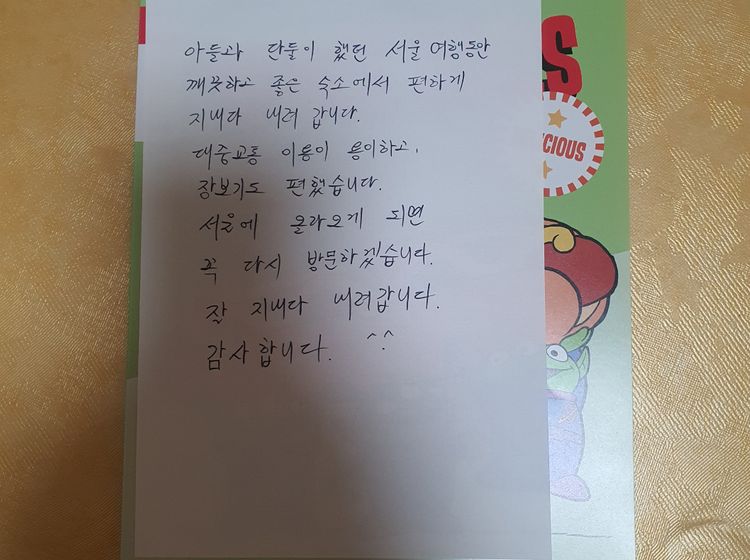 아들과 단둘이 했던 서울 여행동안
깨끗하고 좋은 숙소에서 편하게
지내다 내려 갑니다.
대중교통 이용이 용이하고,
장보기도 편했습니다.
서울에 올라오게 되면
꼭 다시 방문하겠습니다.
잘 지내다 내려갑니다.
감사합니다. ^.^